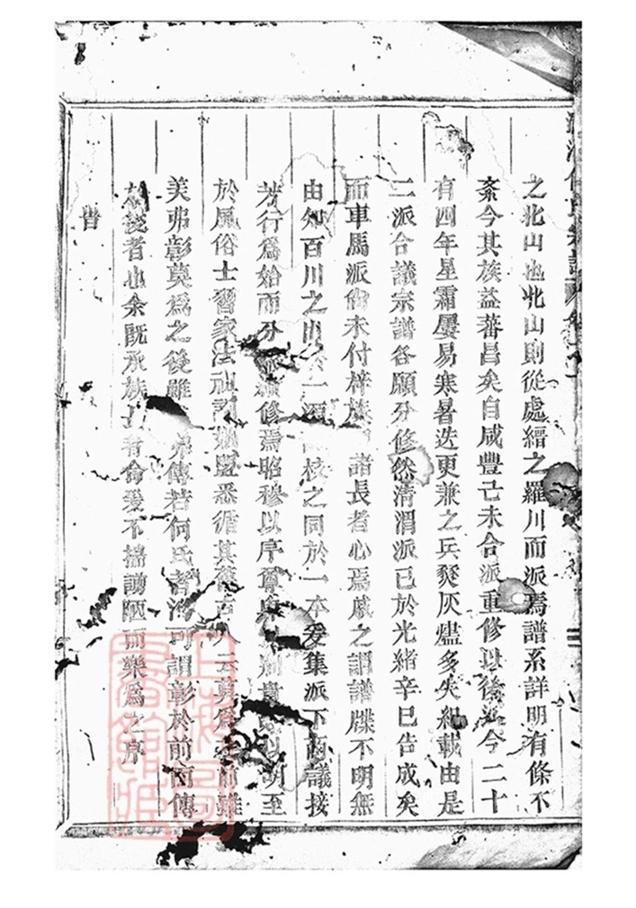 之北山也北山則從處縉之羅川而派焉譜系詳明有條不
紊今其族益蕃昌矣自咸豐己未合派重修以後迄今二十
有四年星霜屢易寒暑迭更兼之兵燹灰燼多失紀載由是
二派合議宗譜各願分修然清渭派已於光緒辛巳告成矣
而車馬派尚未付梓族諸長者心焉戚之謂譜牒不明無
由知百川之出一源核之同於一本爰集派下商議接
芳行為始而分修焉昭穆以序以明至
於風俗士習家法悉循其莫為前雖
美弗彰莫為之後雖弗傳若何氏者洵可謂彰於前而傳
後者也余既承族命爰不揣譾陋而樂為之序
旹